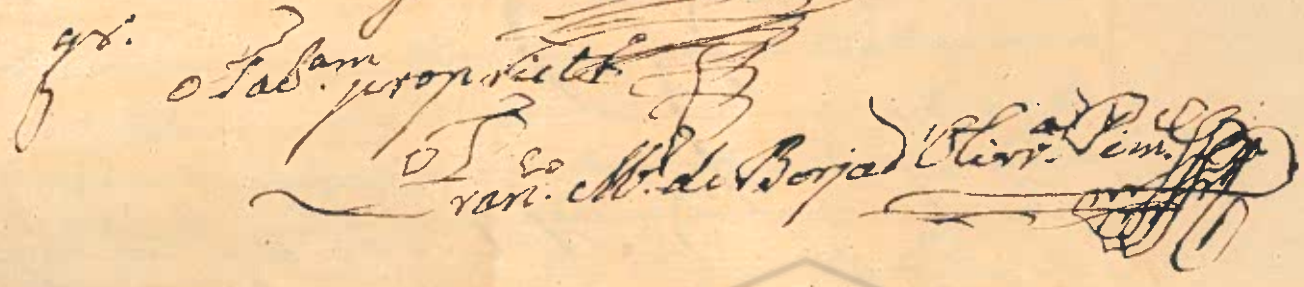 O Tab.am propriet.
Fran.co M.l de Borja d'Oliv.a Pim.el